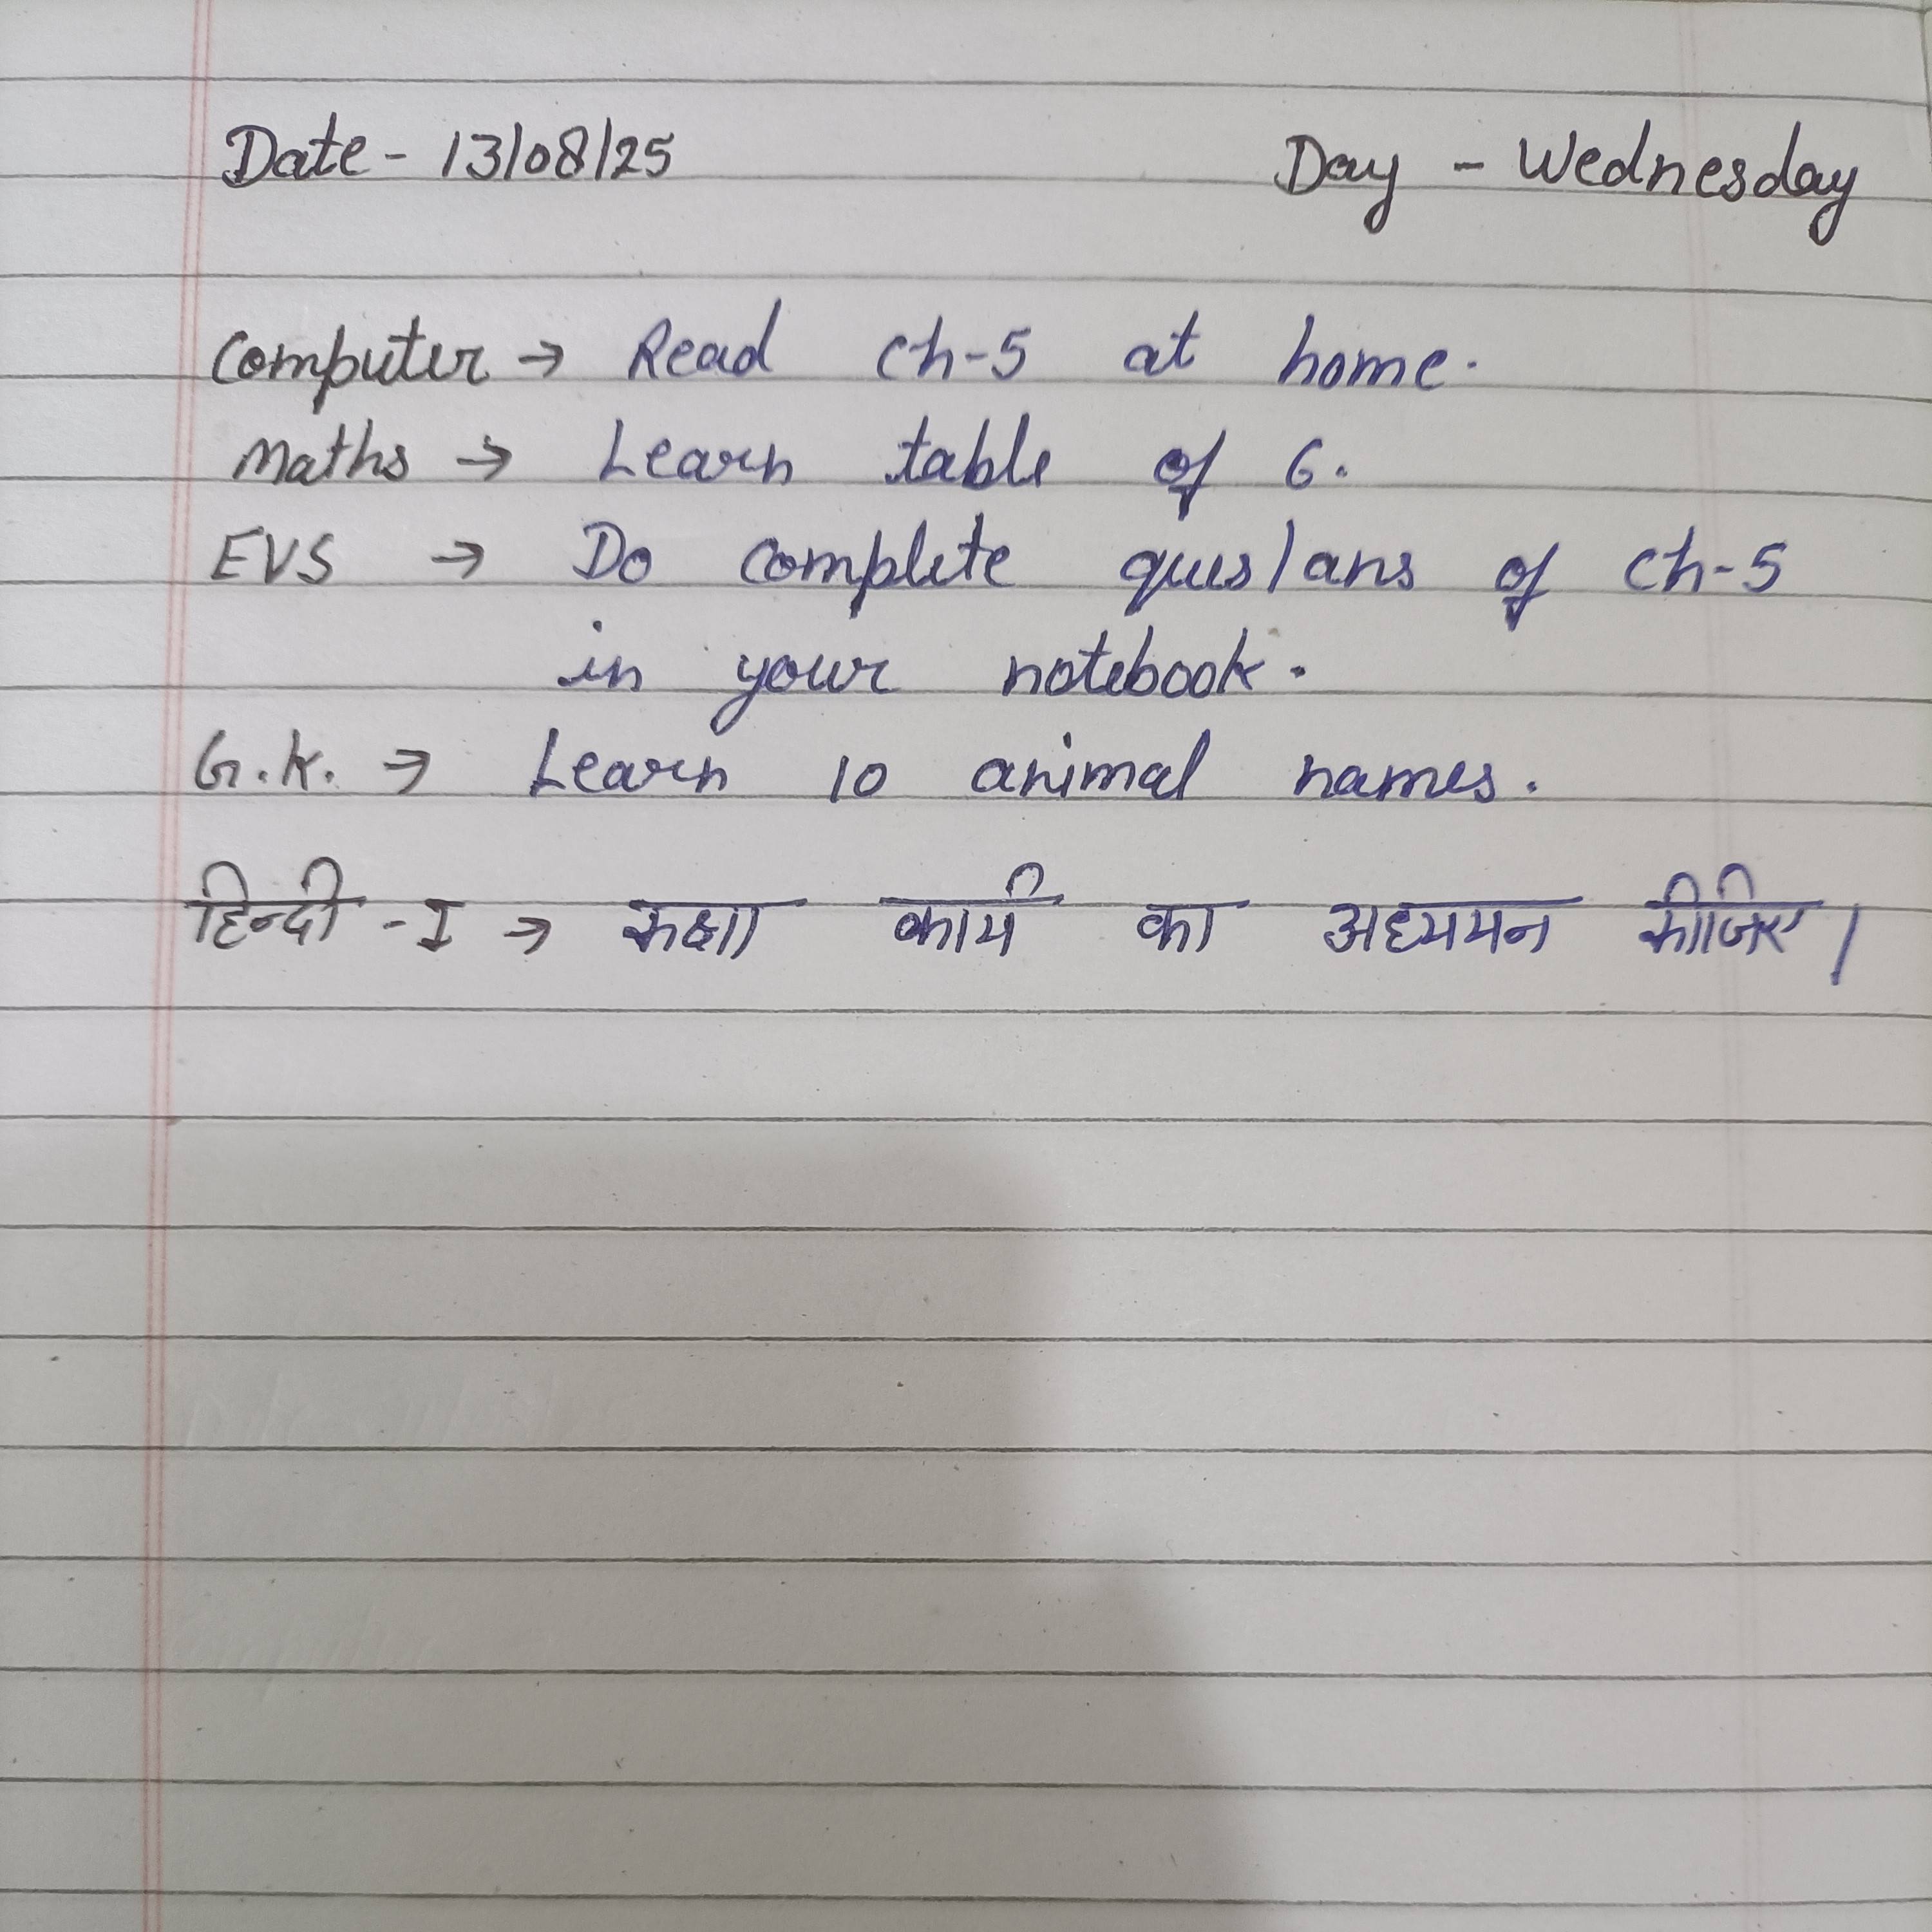 Date - 13/08/25 Day - Wednesday
Computer → Read ch-5 at home.
Maths → Learn table of 6.
EVS → Do complete ques/ans of ch-5
in your notebook.
G.K. → Learn 10 animal names.
हिन्दी - I → कक्षा कार्य का अध्ययन कीजिए।